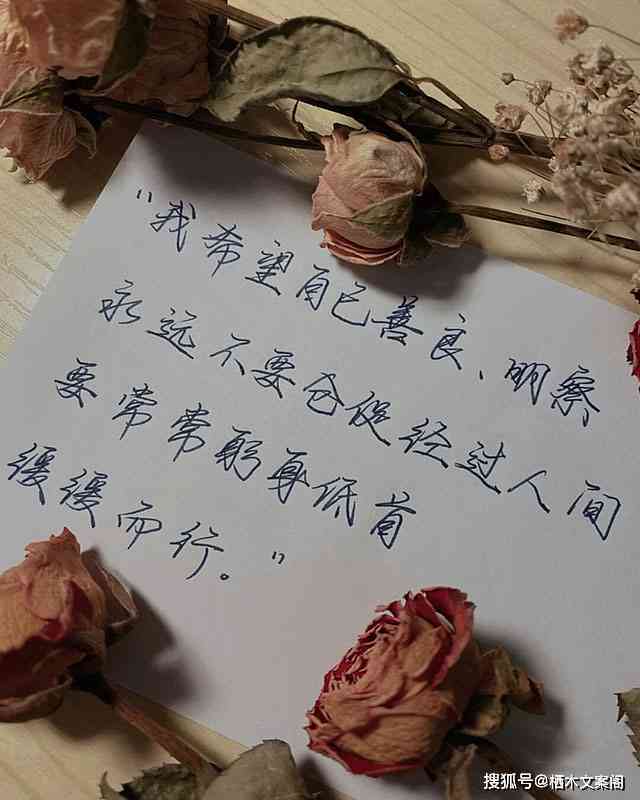 “我希望自己善良、明察
永远不要仓促经过人间
要常常躬身低首
缓缓而行。”
搜狐号@栖木文案阁